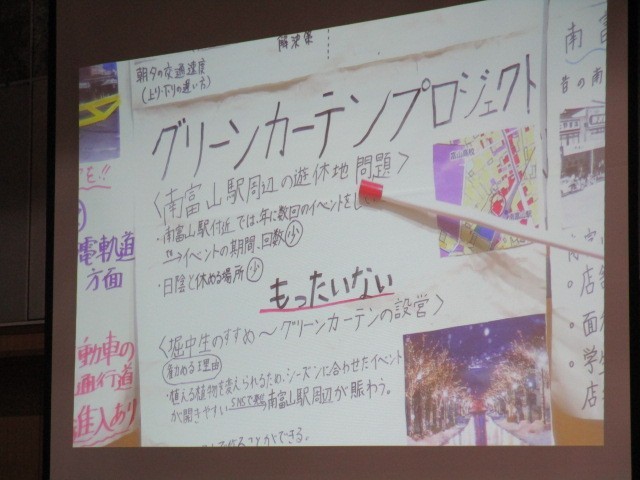 朝夕の交通速度
(上り下りの違い方)
グリーンカーテンプロジェクト
〈南富山駅周辺の遊休地問題〉
・南富山駅付近では、年に数回のイベントを
イベントの期間、回数 少
・日陰と休める場所 少
もったいない
〈堀中生のすすめ〜グリーンカーテンの設営〉
勧める理由
・植える植物を変えられるため、シーズンに合わせたイベント
が開きやすい
SNSで
南富山駅周辺が賑わう。
ことができる。
電軌道
方面
動車の
通行道
進入あり
南富
昔の南
店
・面
・学生
店